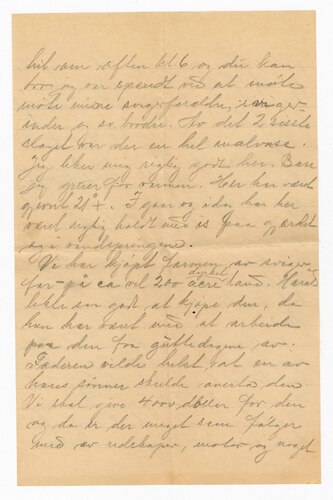 hit om aften kl 6 og du kan
tro jeg var spendt ved at møte
møte mine svigerforældre, sviger-
inder og sv. brødre. Av det 2 sidste
slaget var der en hel
Jeg liker mig rigtig godt her. Bare
jeg gruer for varmen. Her har vært
21° +. I gaar og idag har her
vært rigtig koldt med is paa gjærdet
og i vandspringene.
Vi har kjøpt farmen av sviger-
far paa ca vel 200 acre dyrket land. Harald
likte saa godt at kjøpe den, da
han har vært med at arbeide
paa den fra guttedagene av.
Faderen vilde helst, at en av
hans sønner skulde overta den
Vi skal give 4000 doller for den
og da er der meget som følger
med av redskaper, motor og noget